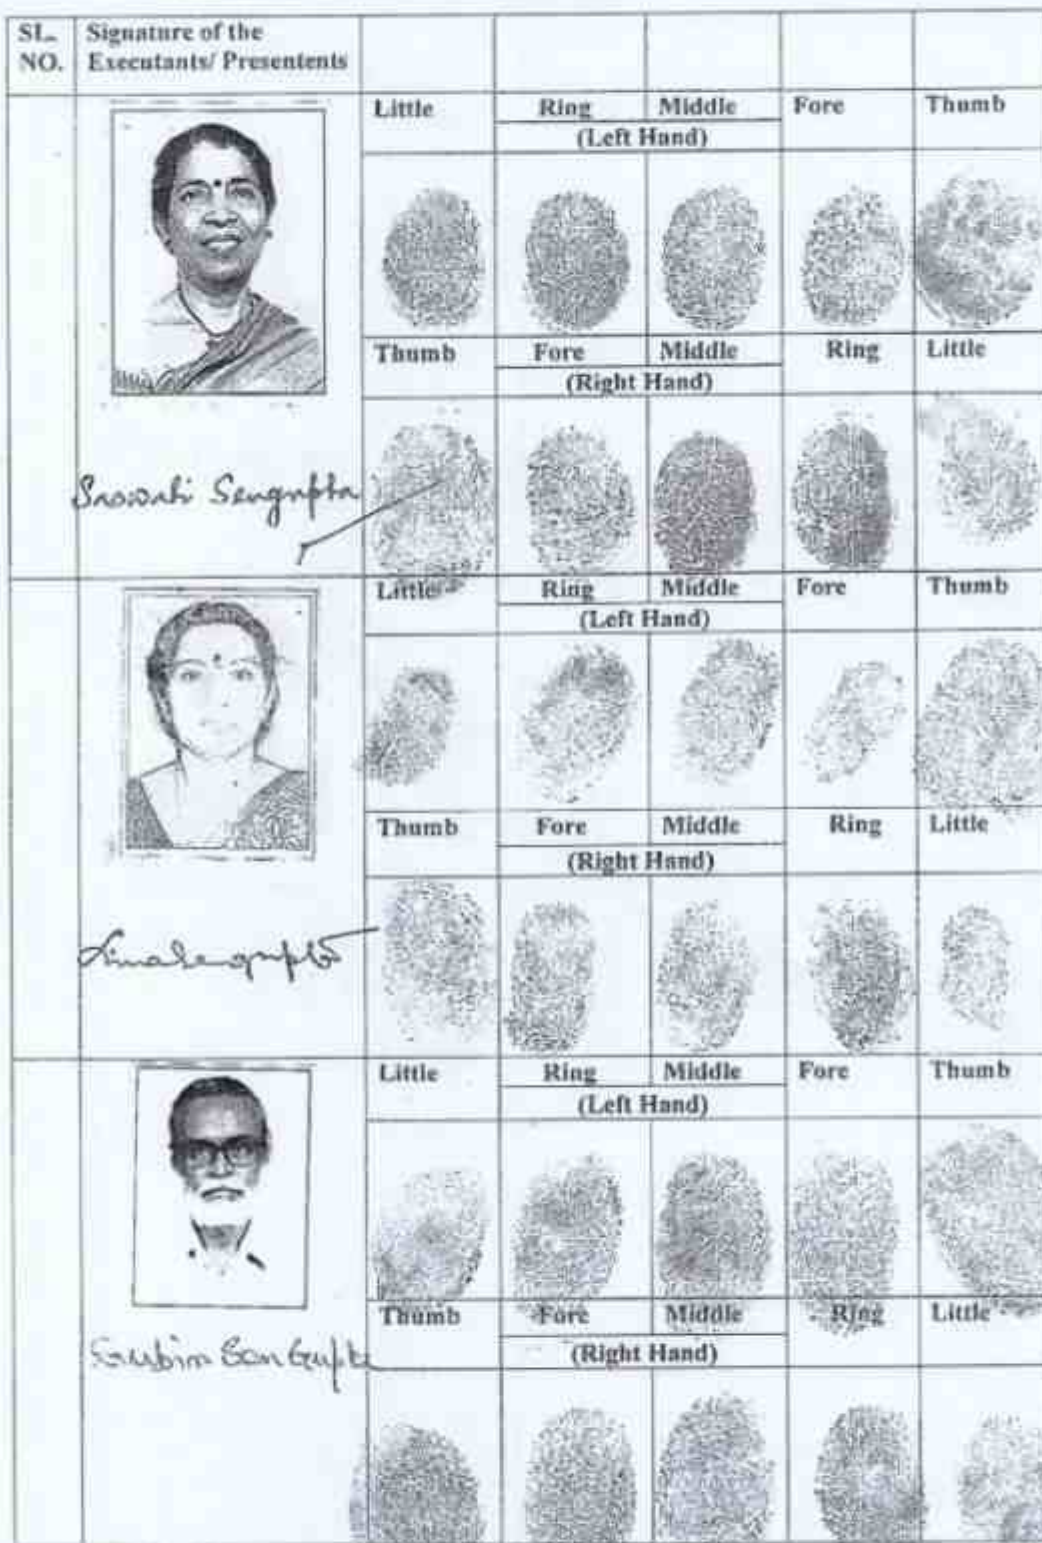 SL. NO. Signature of the Executants/ Presentents
Little Ring Middle Fore Thumb
(Left Hand)
Thumb Fore Middle Ring Little
(Right Hand)
Saswati Sengupta
Little Ring Middle Fore Thumb
(Left Hand)
Thumb Fore Middle Ring Little
(Right Hand)
Little Ring Middle Fore Thumb
(Left Hand)
Thumb Fore Middle Ring Little
(Right Hand)
Sen Gupta